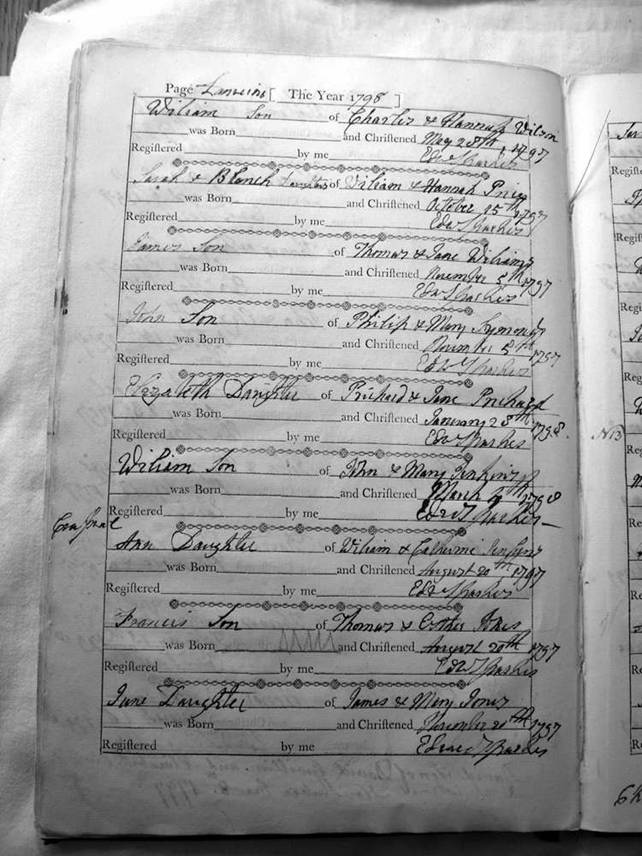 Page [ The Year 1798 ]
William Son of Charles & Hannah Wilson
was Born and Chriſtened May 28th 1797
Regiſtered by me Edw Sparkes
Sarah & Blanch Daughters of William & Hannah
was Born and Chriſtened October 15th 1797
Regiſtered by me Edw Sparkes
James Son of Thomas & Jane Williams
was Born and Chriſtened November 5th 1797
Regiſtered by me Edw Sparkes
John Son of Philip & Mary Symonds
was Born and Chriſtened November 5th 1797
Regiſtered by me Edw Sparkes
Elizabeth Daughter of Prichard & Jane Prichard
was Born and Chriſtened January 28th 1798.
Regiſtered by me Edw Sparkes
William Son of John & Mary Jenkins
was Born and Chriſtened March 1798
Regiſtered by me Edw Sparkes
Ann Daughter of William & Catherine Jenkins
was Born and Chriſtened August 20th 1797
Regiſtered by me Edw Sparkes
Francis Son of Thomas & Esther
was Born and Chriſtened August 20th 1797
Regiſtered by me Edw Sparkes
Jane Daughter of James & Mary Jones
was Born and Chriſtened November 1797
Regiſtered by me Edward Sparkes